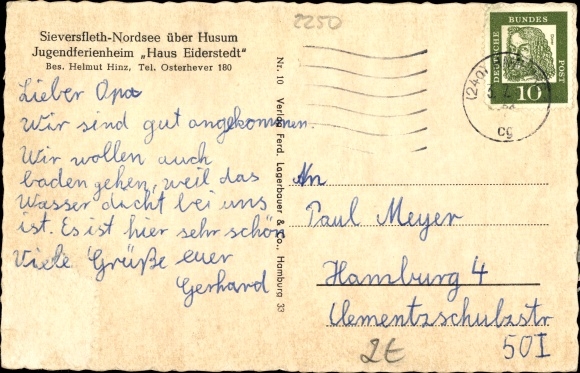 2250
Sieversfleth-Nordsee über Husum
Jugendferienheim „Haus Eiderstedt"
Bes. Helmut Hinz, Tel. Osterhever 180
Lieber Opa
Wir sind gut angekommen.
Wir wollen auch
baden gehen, weil das
Wasser dacht bei uns
ist. Es ist hier sehr schön
Viele Grüße euer
Gerhard
Nr. 10 Verlag Ferd. Lagerbauer & Co., Hamburg 33
DEUTSCHE
BUNDES
POST
10
(24b)
cg
An
Paul Meyer
Hamburg 4
Clementzschulzstr
50I
2€